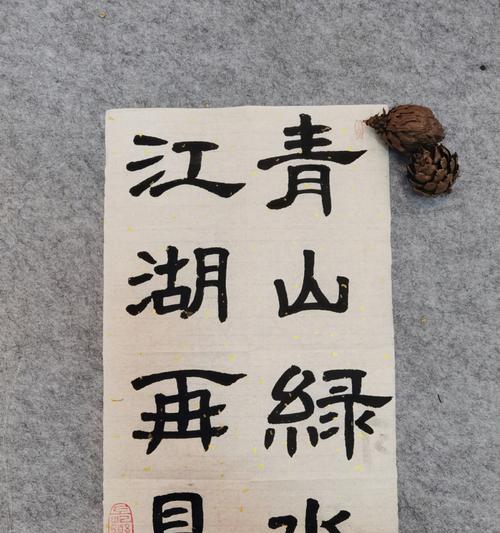 青山緑水
江湖再見